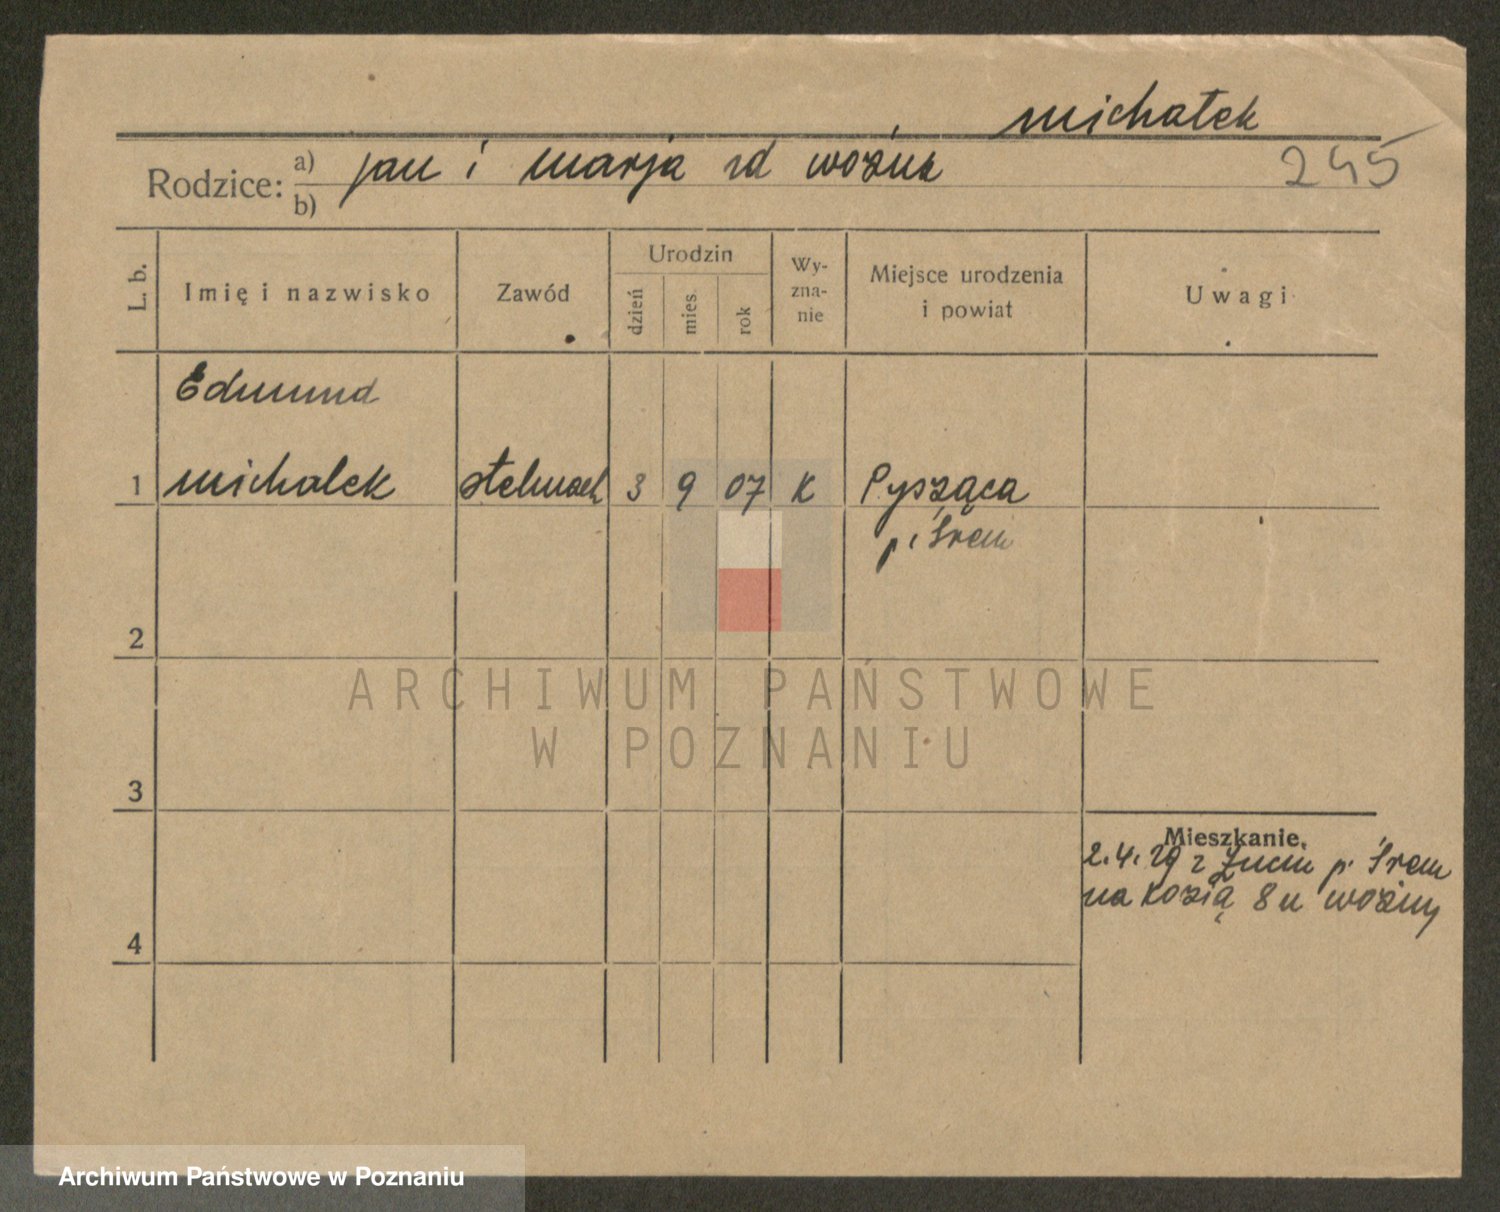 Michałek
Rodzice: a) Jan i Marja zd Woźna
b)
245
L. b.
Imię i nazwisko
Zawód
Urodzin
dzień
mies.
rok
Wy-
zna-
nie
Miejsce urodzenia
i powiat
Uwagi
Edmund
1 Michalek stelmach 3 9 07 K Pysząca
p. Śrem
2
3
4
Mieszkanie.
2.4.29 z p. Śrem
na Kozią 8 u Woźny
ARCHIWUM PAŃSTWOWE
W POZNANIU
Archiwum Państwowe w Poznaniu